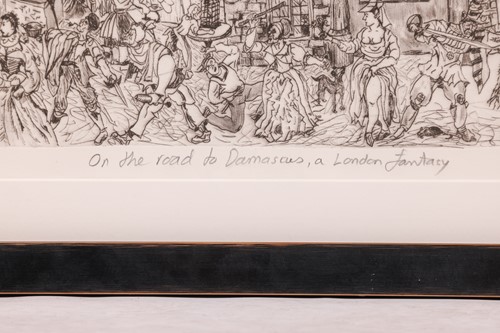 On the road to Damascus, a London Fantasy